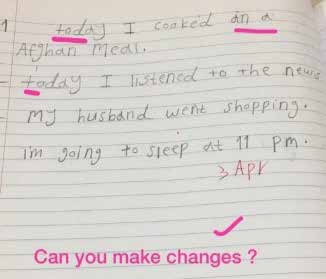 1 today I cooked an a
Afghan Meal.
- today I listened to the news
- my husband went shopping.
im going to sleep at 11 pm.
3 Apr
Can you make changes ?